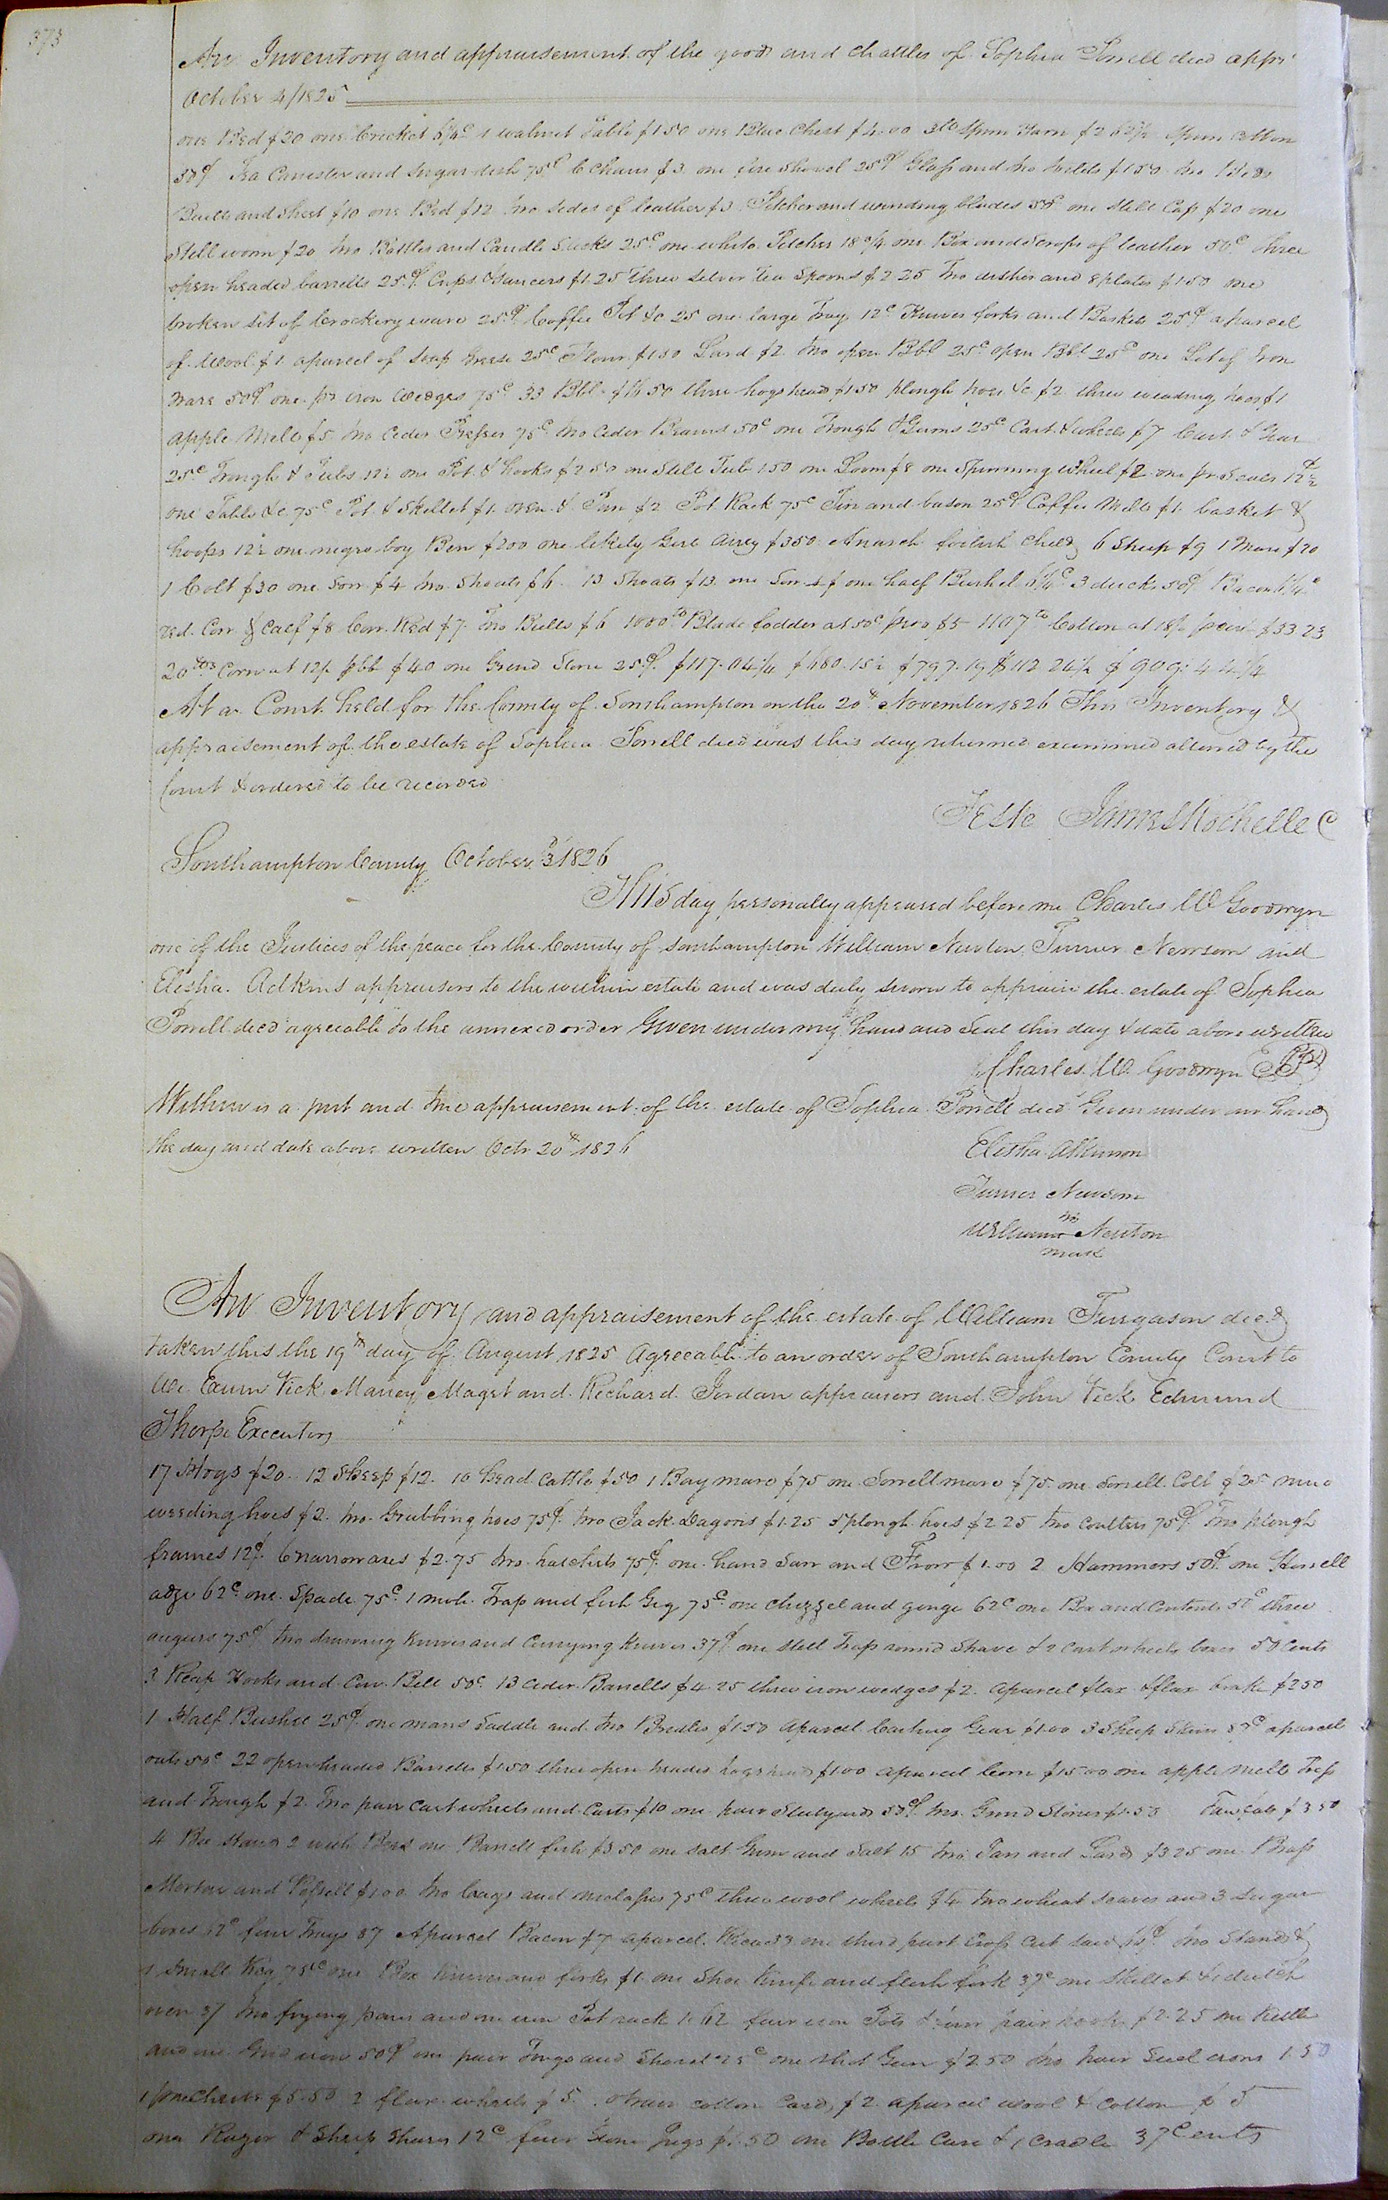 373
An Inventory and appraisement of the goods and chattles of Sophia Porrell decd appr
October 4/1825
one Bed $20 one Cricket 6¼c 1 walnut Table $1.50 one Blue Chest $4.00 3lb Spun Yarn $2 62½ Spun cotton
50c Tea Canester and Sugar dish 75c 6 Chairs $3 one fire Shovel 25c Glass and two $1.50 two Beds
and Sheet $10 one Bed $12 two sides of leather $3 Pitcher and winding blades 50c one Still Cap $20 one
Still worm $20 two Bottles and Candle Sticks 25c one white Pitcher 18¾ one Box and Scraps of leather 50c three
open headed barrells 25c Cups & Saucers $1.25 three Silver Tea Spoons $2 25 two dishes and 8 plates $1.50 one
broken set of Crockery ware 25c Coffee Pot &c 25 one large Tray 12c Knives forks and Baskets 25c a parcel
of Wool $1 a parcel of Soap Grease 25c Flour $1.50 Lard $2 two open Bbl 25c open Bbl 25c one Lot of Iron
ware 50c one pr iron wedges 75c 33 Bbl $16 50 three hogshead $1.50 plough hoes &c $2 three weeding hoes $1
apple Mill $5 two Ceder Presses 75c two Ceder 50c one Trough & Gums 25c Cart & wheels $7 Cart & Gear
25c Trough & Tubs 12½ one Pot & hooks $2.50 one Still Tub 1.50 one Loom $8 one Spinning wheel $2 one pr Scales 12½
one Table &c 75c Pot & Skillet $1 oven & Pan $2 Pot Rack 75c Tin and bason 25c Coffee Mill $1 basket &
hoops 12½ one negro boy Ben $200 one likely Girl Amy $350 foolish Child 6 Sheep $9 1 Mare $20
1 Colt $30 one Sow $4 two Shoats $6 13 Shoats $13 one Sow $4 one half Bushel 6¼c 3 ducks 50c Bacon 6¼c
red Cow & Calf $8 Cow Red $7 two Bulls $6 1000lb Blade fodder at 50c $5 1107lb Cotton at $33 23
20 Corn at 12/ pbb $40 one Grind Stone 25c $117.04¼ $680.15½ $797.19 $112 24½ $909: 44¼
At a Court held for the County of Southampton on the 20th November 1826 This Inventory &
appraisement of the estate of Sophia Porrell decd was this day returned examined allowed by the
Court & ordered to be recorded
Teste James Rochelle C
Southampton County October 3d 1826
This day personally appeared before me Charles W Goodwyn
one of the Justices of the peace for the County of Southampton William Newton Turner Newsom and
Elisha Adkins appraisers to the within estate and was duly sworn to appraise the estate of Sophia
Porrell decd agreeable to the annexed order Given under my hand and Seal this day & date above written
Charles W. Goodwyn
Within is a just and true appraisement of the estate of Sophia Porrell decd Given under our hand
the day and date above written Octr 20th 1826
Elisha Atkinson
Turner Newsom
his
William Newton
mark
An Inventory and appraisement of the estate of William Furgason decd
taken this the 19th day of August 1825 Agreeable to an order of Southampton County Court to
We Exum Vick Maney Magét and Richard Jordan appraisers and John Vick Edmund
Thorp Executors
17 Hogs $20 12 Sheep $12 10 head Cattle $50 1 Bay mare $75 one Sorrell mare $75 one Sorrell Colt $25 nine
weeding hoes $2 two Grubbing hoes 75c two Jack Dagons $1.25 5 plough hoes $2 25 two Coulters 75c Two plough
frames 12c 6 narrow axes $2.75 two hatchets 75c one hand Saw and Frow $1.00 2 Hammers 50c one
adze 62c one Spade 75c 1 mole Trap and fish Gig 75c one Chizzel and gouge 62c one Box and Contents 50c three
augurs 75c two drawing Knives and Currying Knives 37c one Steel Trap round Shave & 2 cart wheels boxes 50 Cents
3 Reap Hooks and Cow Bell 50c 13 Cider Barrells $4 25 three iron wedges $2 a parcel flax & flax brake $2 50
1 Half Bushel 25c one mans Saddle and two Bridles $1.50 a parcel Carting Gear $1.00 3 Sheep Skins a parcel
oats 50c 22 open headed Barrells $4.50 three open headed hogshead $1.00 a parcel Corn $15.00 one apple Mill Press
and Trough $2 Two pair Cart wheels and Carts $10 one pair Steelyards 50c two Grind Stones $1.50 $3 50
4 Bee stands 2 with Bees one Barrell fish $3.50 one salt Gum and Salt 15 two Jars and Lard $3 25 one Brass
Mortar and $1.00 two and molasses 75c three wool wheels $4 two wheat and 3 Sugar
boxes four Trays 87 A parcel Bacon $7 a parcel one third part Cross Cut saw two Stands &
1 small Keg 75c one Box Knives and forks $1 one Shoe Knife and flesh fork 37c one Skillet & 1 dutch
oven 37 two frying pans and one iron Pot rack 1.62 four iron Pots & four pair hooks $2.25 one Kettle
and one Grid iron 50c one pair Tongs and Shovel 25c one Shot Gun $2 50 two pair irons 1.50
$5.50 2 flax wheels $5 cotton Cards $2 a parcel wool & Cotton $5
one Razor & Sheep Shears 12c four Stone Jugs $1.50 one Bottle Case & 1 Cradle 37 Cents